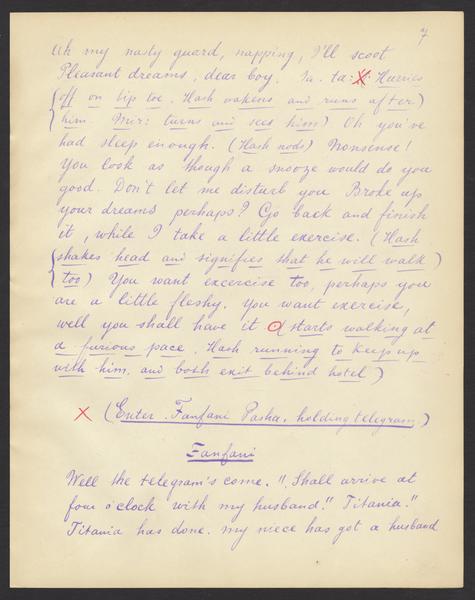 7
Ah my nasty guard, napping, I'll scoot
Pleasant dreams, dear boy. Ta. ta. Hurries
(off on tip toe. Hash wakens and runs after)
him. Mir: turns and sees him) Oh you've
had sleep enough. (Hash nods) Nonsense!
You look as though a snooze would do you
good. Don't let me disturb you Broke up
your dreams perhaps? Go back and finish
it, while I take a little exercise. (Hash
shakes head and signifies that he will walk)
too) You want excercise too, perhaps you
are a little fleshy. You want exercise,
well you shall have it starts walking at
a furious pace. Hash running to keep up
with him. and both exit behind hotel)
X (Enter. Fanfani Pasha. holding telegram)
Fanfani
Well the telegram's come. "Shall arrive at
four o'clock with my husband." Titania."
Titania has done. my niece has got a husband